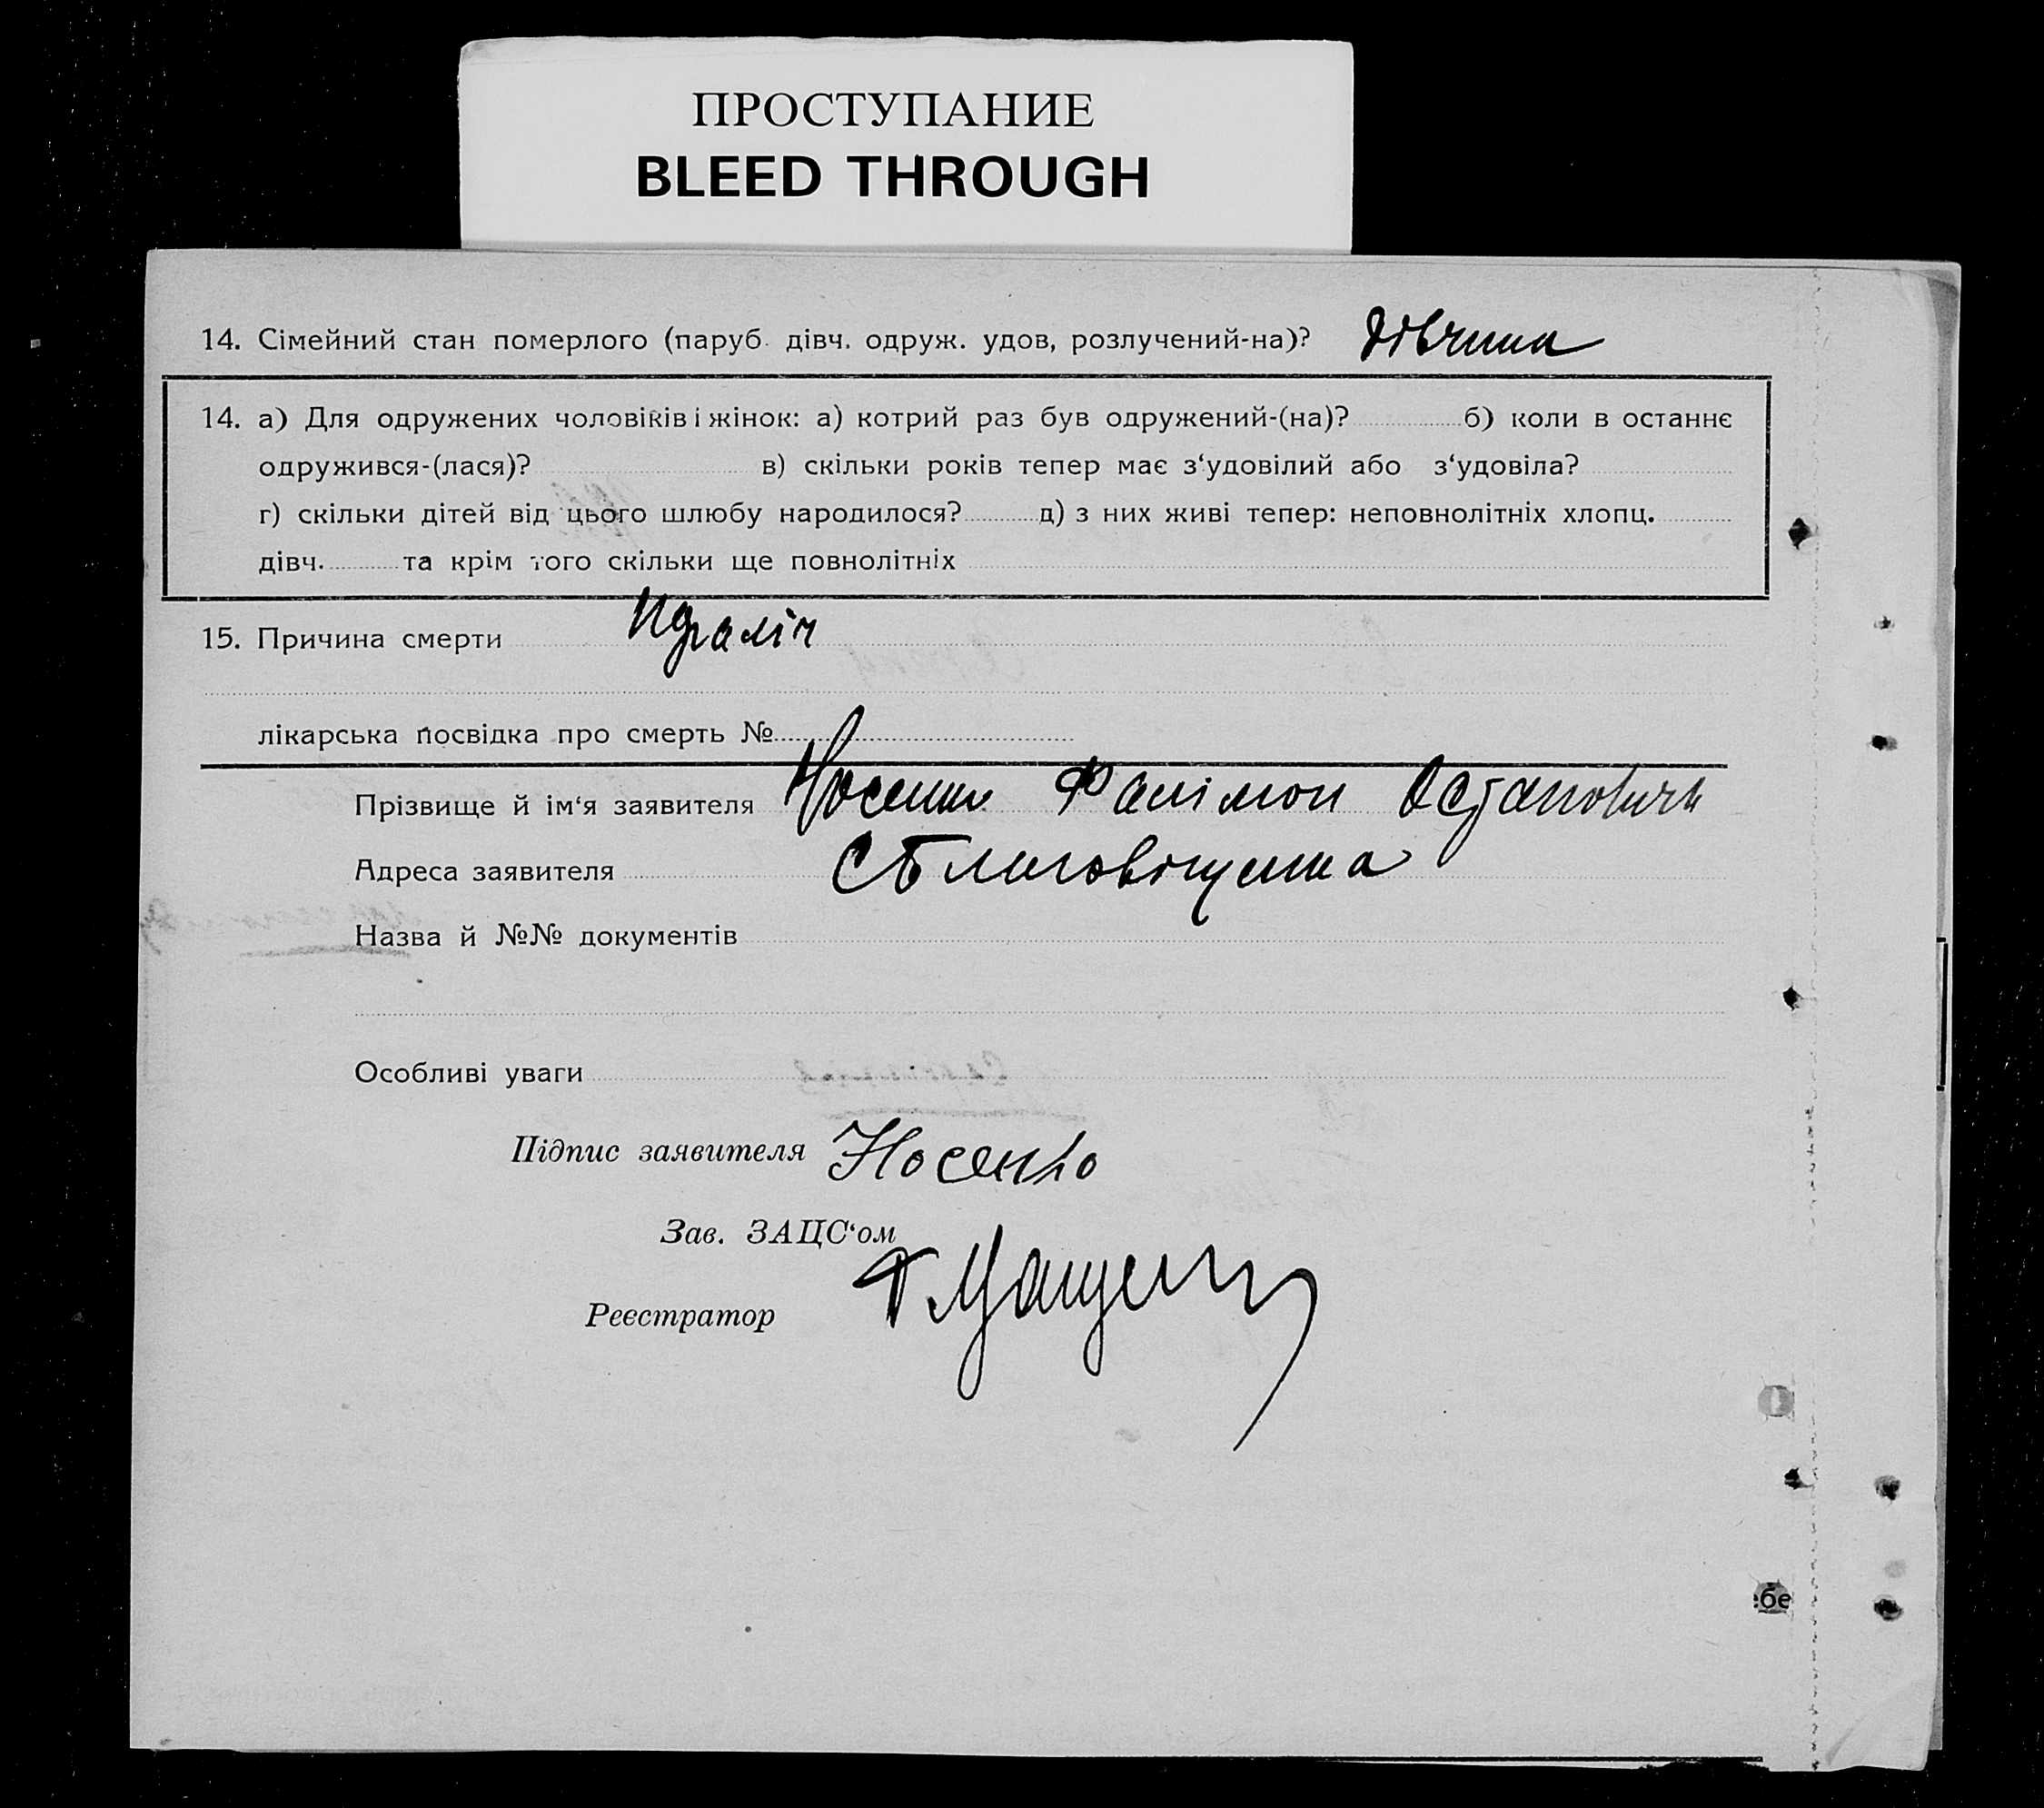 ПРОСТУПАНИЕ
BLEED THROUGH
14. Сімейний стан померлого (паруб. дівч. одруж. удов, розлучений-на)? дівчина
14. а) Для одружених чоловіків і жінок: а) котрий раз був одружений-(на)? б) коли в останнє
одружився-(лася)? в) скільки років тепер має з‘удовілий або з‘удовіла?
г) скільки дітей від цього шлюбу народилося? д) з них живі тепер: неповнолітніх хлопц.
дівч. та крім того скільки ще повнолітніх
15. Причина смерти
лікарська посвідка про смерть №
Прізвище й ім‘я заявителя Носенко Филімон Остапович
Адреса заявителя
Назва й №№ документів
Особливі уваги
Підпис заявителя Носенко
Зав. ЗАЦС‘ом
Реєстратор
бе